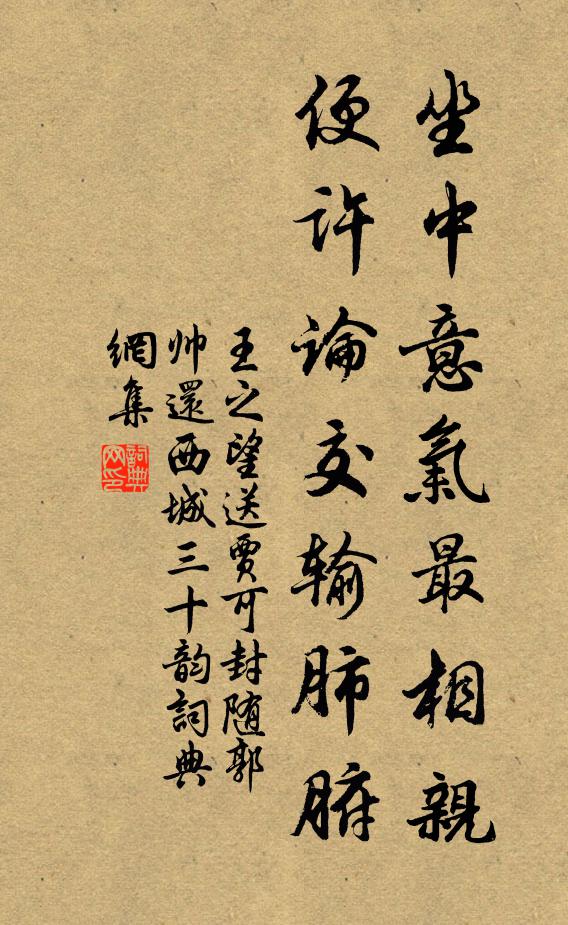 坐中意氣最相親
便許論交输肺腑
王之望送賈可封随郭
帅還西城三十韵詞典
網集
詞典网印